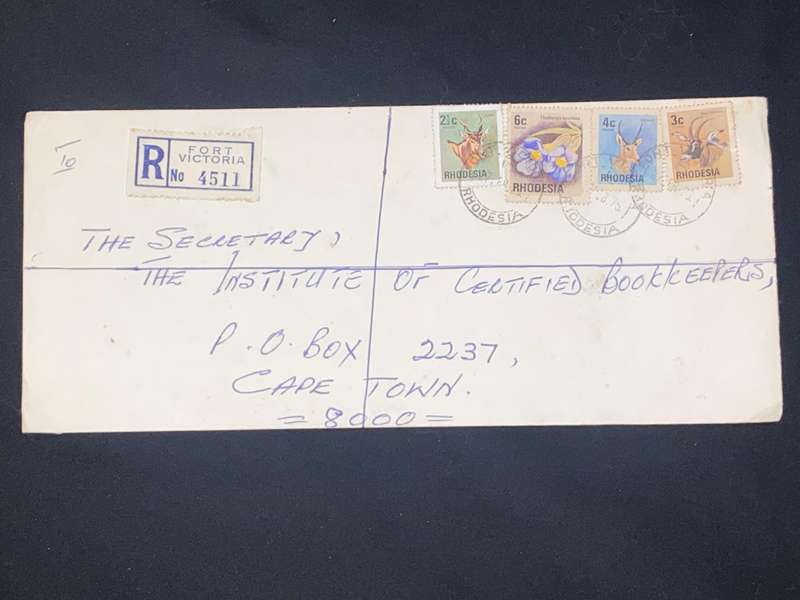 To
R
FORT
VICTORIA
No 4511
2½c
RHODESIA
6c
RHODESIA
4c
RHODESIA
3c
RHODESIA
RHODESIA
RHODESIA
RHODESIA
THE SECRETARY,
THE INSTITUTE OF CERTIFIED BOOKKEEPERS,
P.O. BOX 2237,
CAPE TOWN.
=8000=